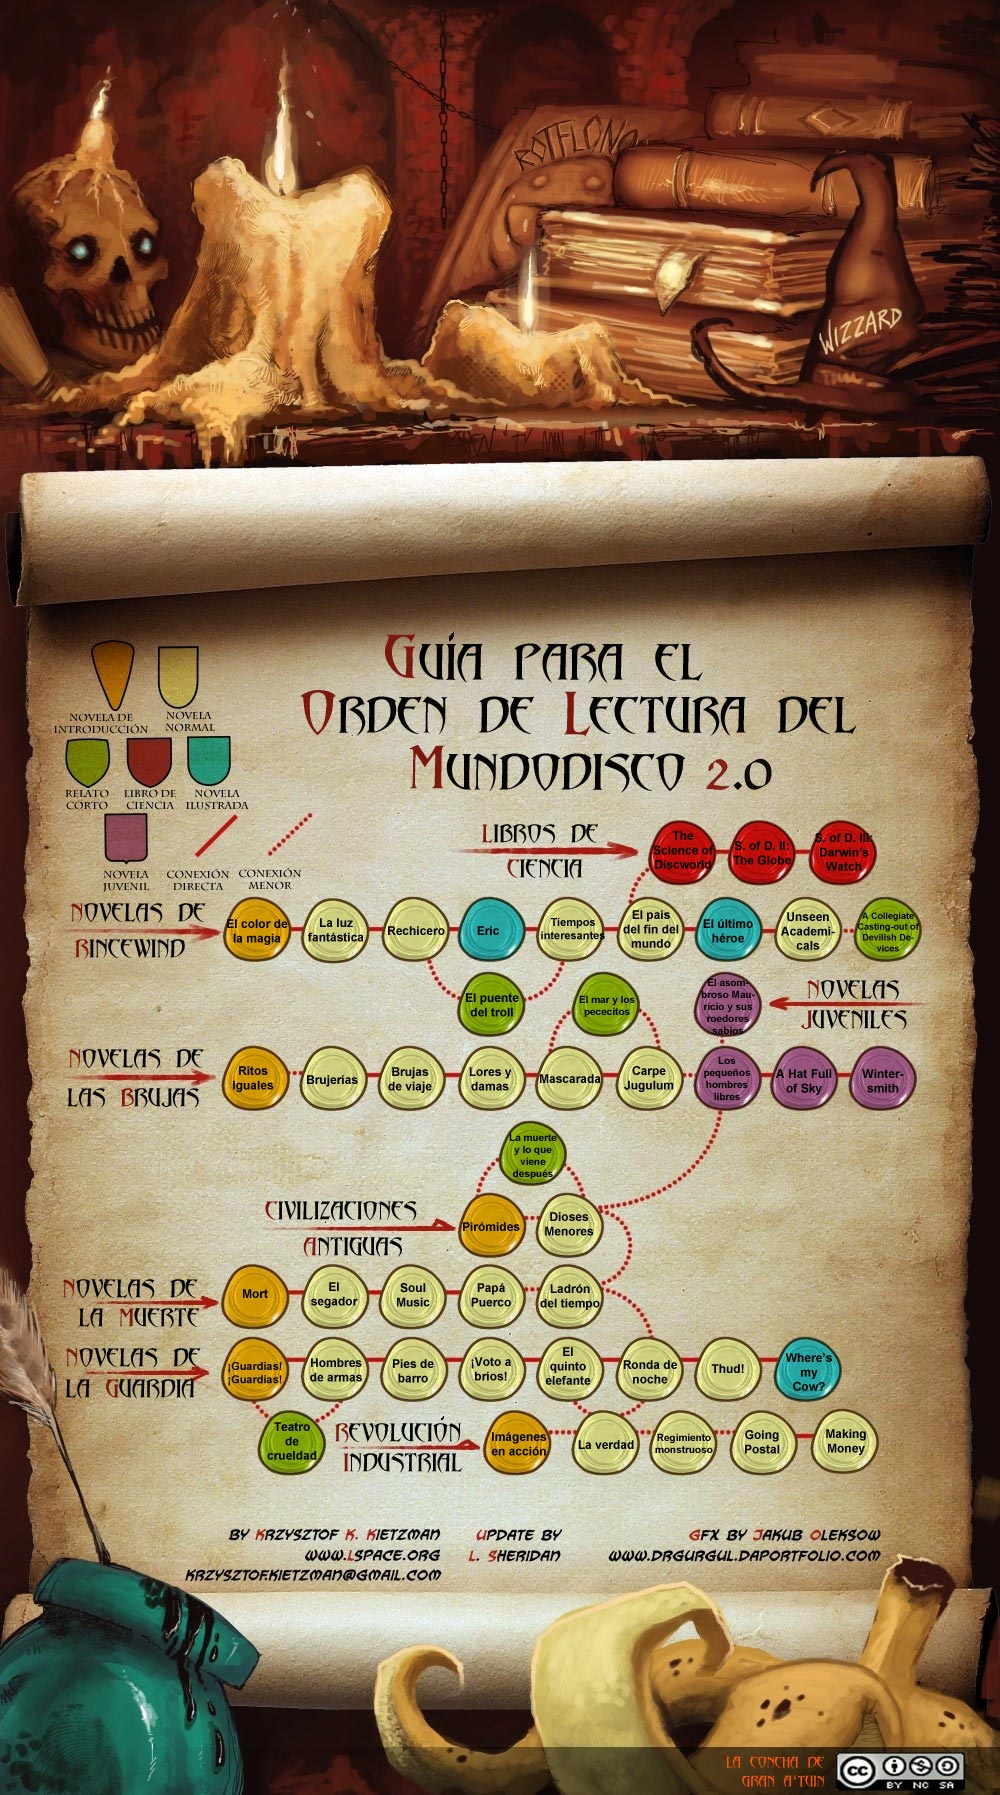 ROTFLONO
WIZZARD
GUÍA PARA EL
ORDEN DE LECTURA DEL
MUNDODISCO 2.0
NOVELA DE
INTRODUCCIÓN
NOVELA
NORMAL
RELATO
CORTO
LIBRO DE
CIENCIA
NOVELA
ILUSTRADA
NOVELA
JUVENIL
CONEXIÓN
DIRECTA
CONEXIÓN
MENOR
LIBROS DE
CIENCIA
The
Science of
Discworld
S. of D. II:
The Globe
S. of D. III:
Darwin's
Watch
NOVELAS DE
RINCEWIND
El color de
la magia
La luz
fantástica
Rechicero
Eric
Tiempos
interesantes
El pais
del fin del
mundo
El último
héroe
Unseen
Academi-
cals
A Collegiate
Casting-out of
Devilish De-
vices
El puente
del troll
El mar y los
pececitos
El asom-
broso Mau-
ricio y sus
roedores
sabios
NOVELAS
JUVENILES
NOVELAS DE
LAS BRUJAS
Ritos
Iguales
Brujerías
Brujas
de viaje
Lores y
damas
Mascarada
Carpe
Jugulum
Los
pequeños
hombres
libres
A Hat Full
of Sky
Winter-
smith
La muerte
y lo que
viene
después
CIVILIZACIONES
ANTIGUAS
Pirómides
Dioses
Menores
NOVELAS DE
LA MUERTE
Mort
El
segador
Soul
Music
Papá
Puerco
Ladrón
del tiempo
NOVELAS DE
LA GUARDIA
¡Guardias!
¡Guardias!
Hombres
de armas
Pies de
barro
¡Voto a
bríos!
El
quinto
elefante
Ronda de
noche
Thud!
Where's
my
Cow?
Teatro
de
crueldad
REVOLUCIÓN
INDUSTRIAL
Imágenes
en acción
La verdad
Regimiento
monstruoso
Going
Postal
Making
Money
BY KRZYSZTOF K. KIETZMAN
WWW.LSPACE.ORG
KRZYSZTOF.KIETZMAN@GMAIL.COM
UPDATE BY
L. SHERIDAN
GFX BY JAKUB OLEKSOW
WWW.DRGURGUL.DAPORTFOLIO.COM
LA CONCHA DE
GRAN A'TUIN
cc
BY NC SA